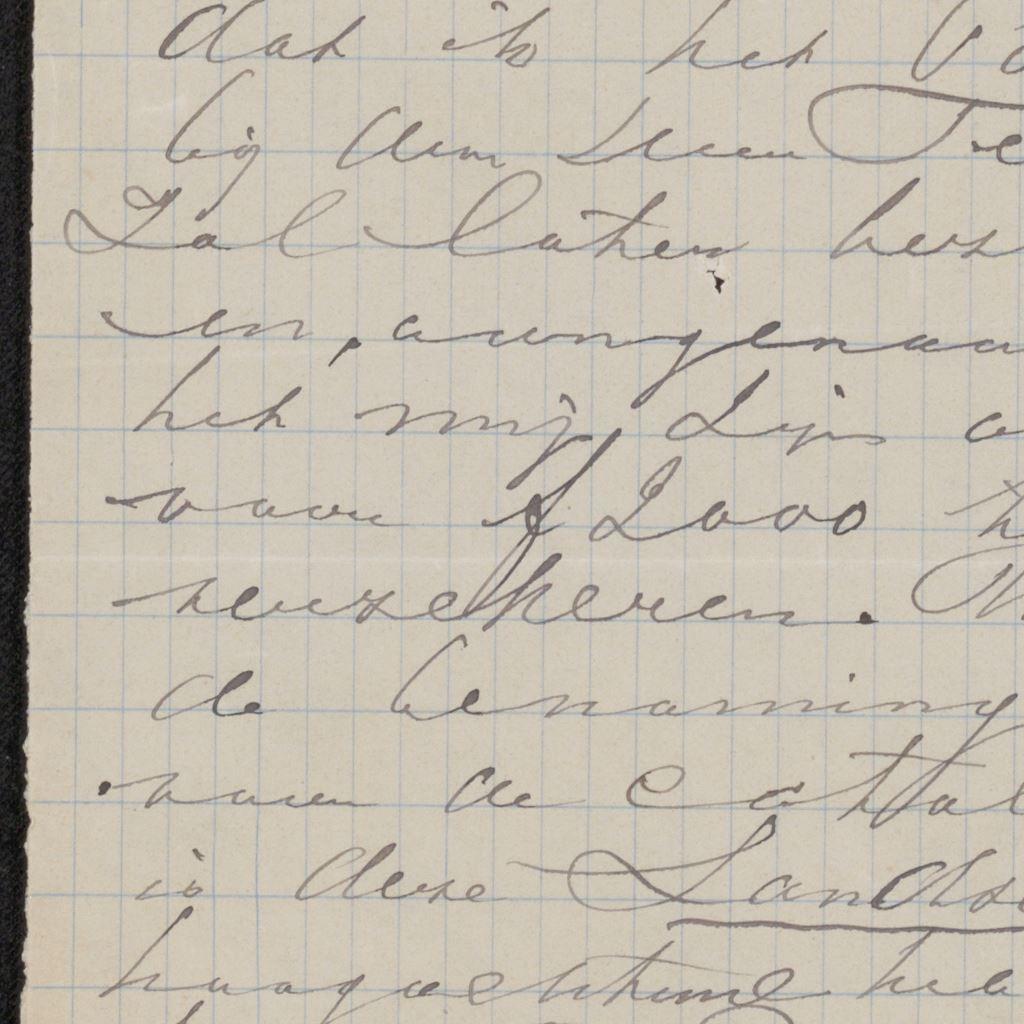 dat is het
bij den Heer Te
Zal laten bez
en, aangenaam
het mij zijn
voor f 2000
verzekeren.
de benaming
van de Cattal
is deze Landsc
hoogachtend he